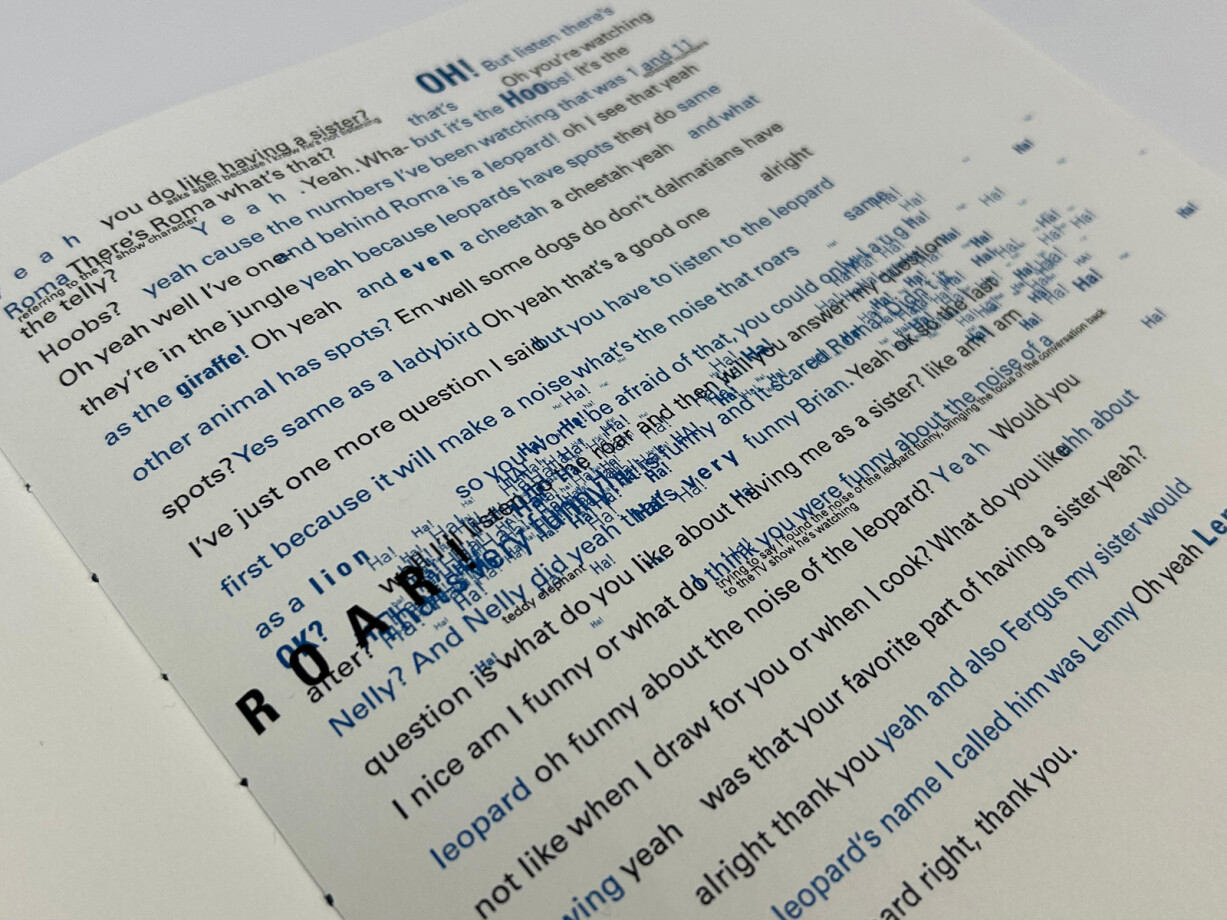 OH! But listen there's
you do like having a sister? that's Oh you're watching
asks again because I know he's not listening
Yeah There's Roma what's that? Yeah. Wha- but it's the Hoobs! It's the
Roma
referring to the TV show character
the telly? Yeah yeah cause the numbers I've been watching that was 1 and 11
Hoobs? and behind Roma is a leopard! oh I see that yeah
Oh yeah well I've one
they're in the jungle yeah because leopards have spots they do same
as the giraffe! Oh yeah and even a cheetah a cheetah yeah and what
other animal has spots? Em well some dogs do don't dalmatians have
spots? Yes same as a ladybird Oh yeah that's a good one alright
I've just one more question I said but you have to listen to the leopard
first because it will make a noise what's the noise that roars same
as a lion so you won't be afraid of that, you could only laugh
OK? well I listen to the roar and then will you answer my question
after? ROAR!
that's very funny! it is funny and it scared Roma didn't it
Nelly? And Nelly did yeah that's very funny Brian. Yeah ok so the last
teddy elephant
Ha! Ha! Ha! Ha! Ha! Ha!
question is what do you like about having me as a sister? like am I am
I nice am I funny or what do I think you were funny about the noise of a
trying to say I found the noise of the leopard funny, bringing the focus of the conversation back
to the TV show he's watching
leopard oh funny about the noise of the leopard? Yeah Would you
not like when I draw for you or when I cook? What do you like ahh about
wing yeah was that your favorite part of having a sister yeah?
alright thank you yeah and also Fergus my sister would
leopard's name I called him was Lenny Oh yeah Le
ard right, thank you.